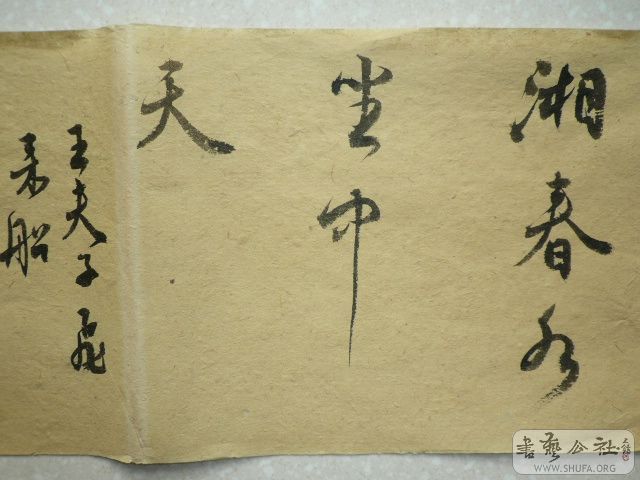 湘春水
坐中
天
王夫子飛
来船
書藝公社
WWW.SHUFA.ORG